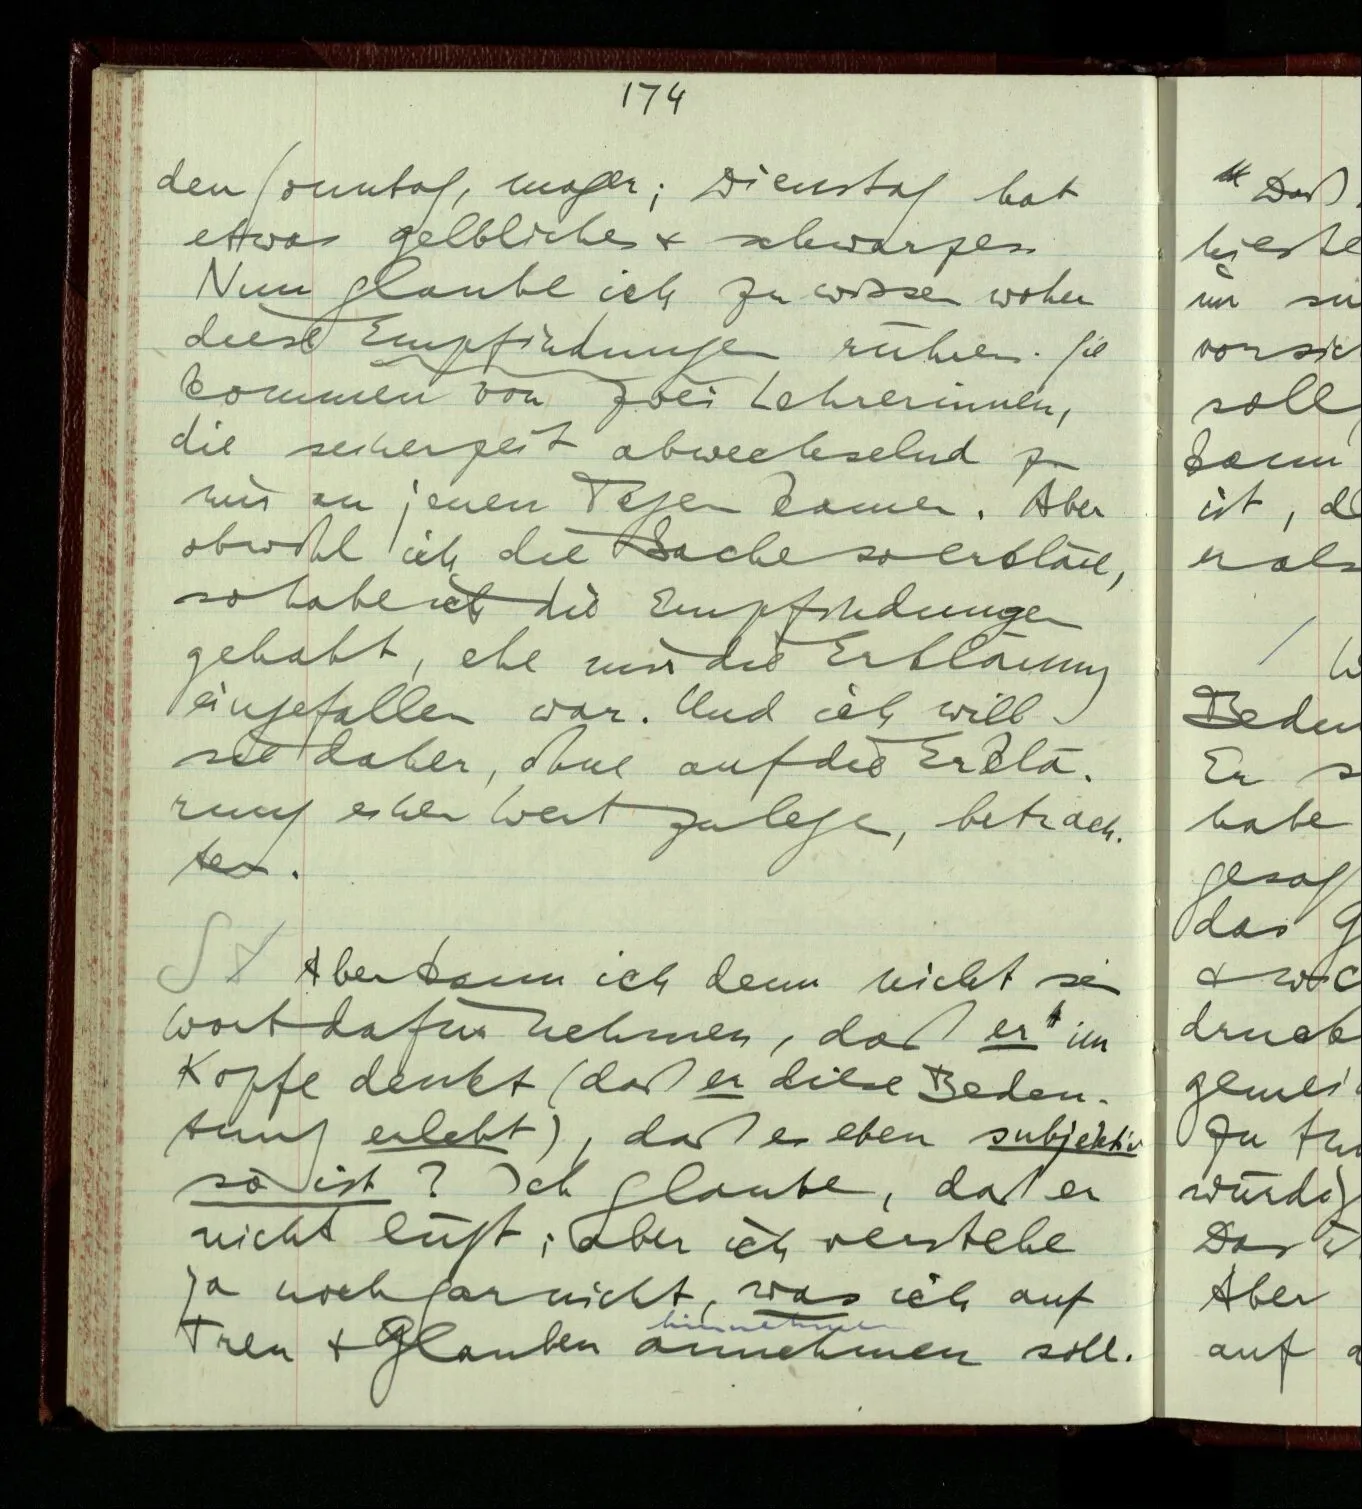 174
den Sonntag, mager; Dienstag hat
etwas gelbliches & schwarzes
Nun glaube ich zu wissen woher
diese Empfindungen rühren. Sie
kommen von zwei Lehrerinnen,
die seinerzeit abwechselnd zu
mir an jenen Tagen kamen. Aber
obwohl ich die Sache so erkläre,
so habe ich die Empfindungen
gehabt, ehe mir die Erklärung
eingefallen war. Und ich will
sie daher, ohne auf die Erklä-
rung einen Wert zu legen, betrach-
ten.
Aber kann ich denn nicht sein
Wort dafür nehmen, daß er im
Kopfe denkt (daß er diese Bedeu-
tung erlebt), daß es eben subjektiv
so ist? Ich glaube, daß er
nicht lügt; aber ich verstehe
ja noch gar nicht, was ich auf
hinnehmen
Treu & Glauben annehmen soll.
"Daß
im
soll
kann
ist,
er als
Er
habe
das
Aber
auf